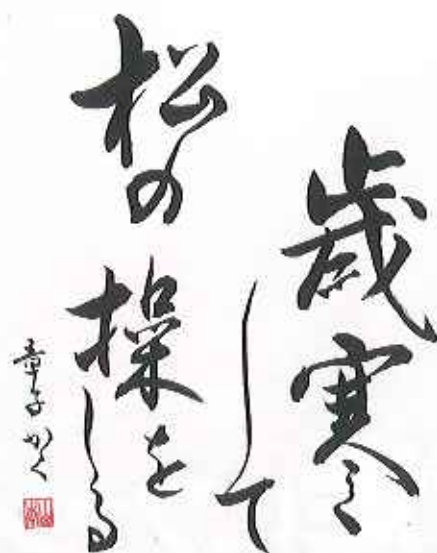 歳寒
して
松の操を
しる
章子かく